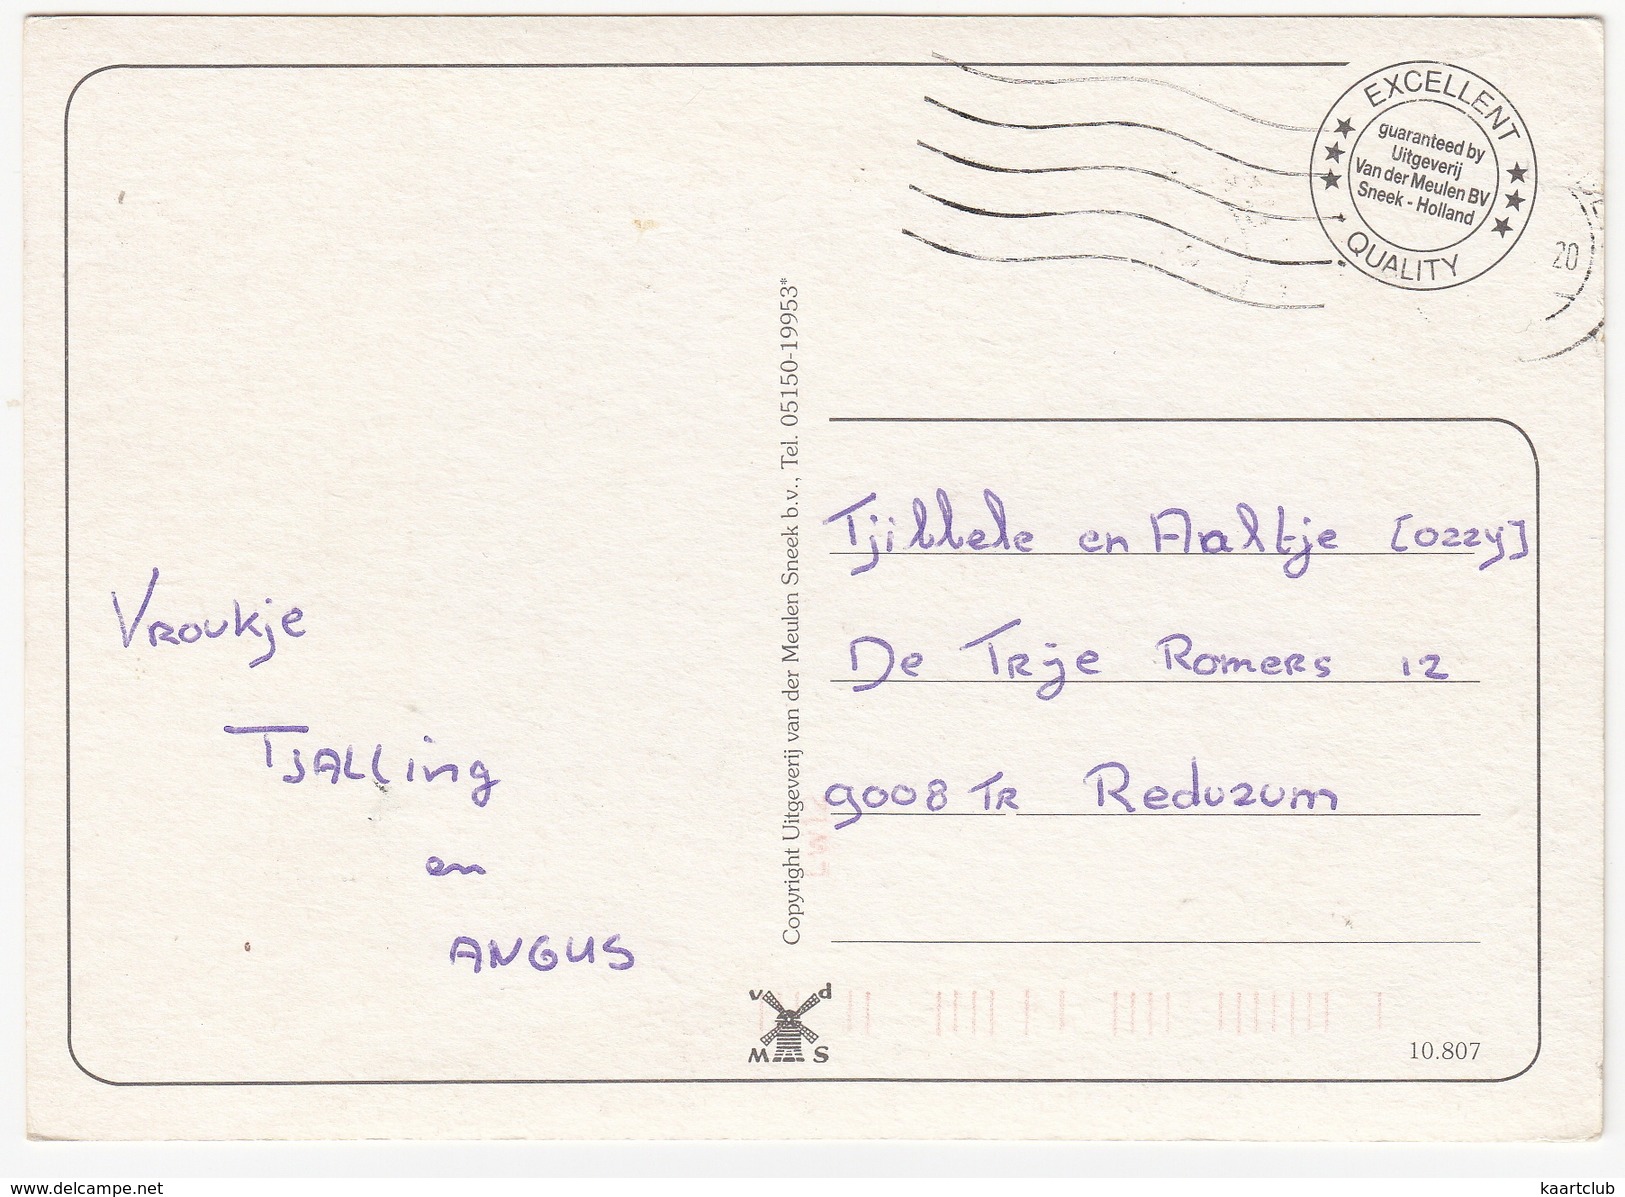 EXCELLENT
guaranteed by
Uitgeverij
Van der Meulen BV
Sneek - Holland
QUALITY
20
Vroukje
Tjalling
en
ANGUS
Copyright Uitgeverij van der Meulen Sneek b.v., Tel. 05150-19953*
Tjibbele en Aaltje [Ozzy]
De Trije Romers 12
9008 TR Reduzum
v d
M S
10.807
www.delcampe.net
kaartclub